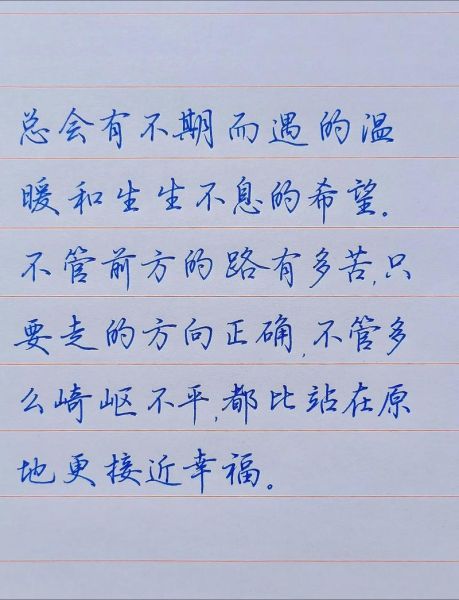 总会有不期而遇的温
暖和生生不息的希望。
不管前方的路有多苦,只
要走的方向正确,不管多
么崎岖不平,都比站在原
地更接近幸福。